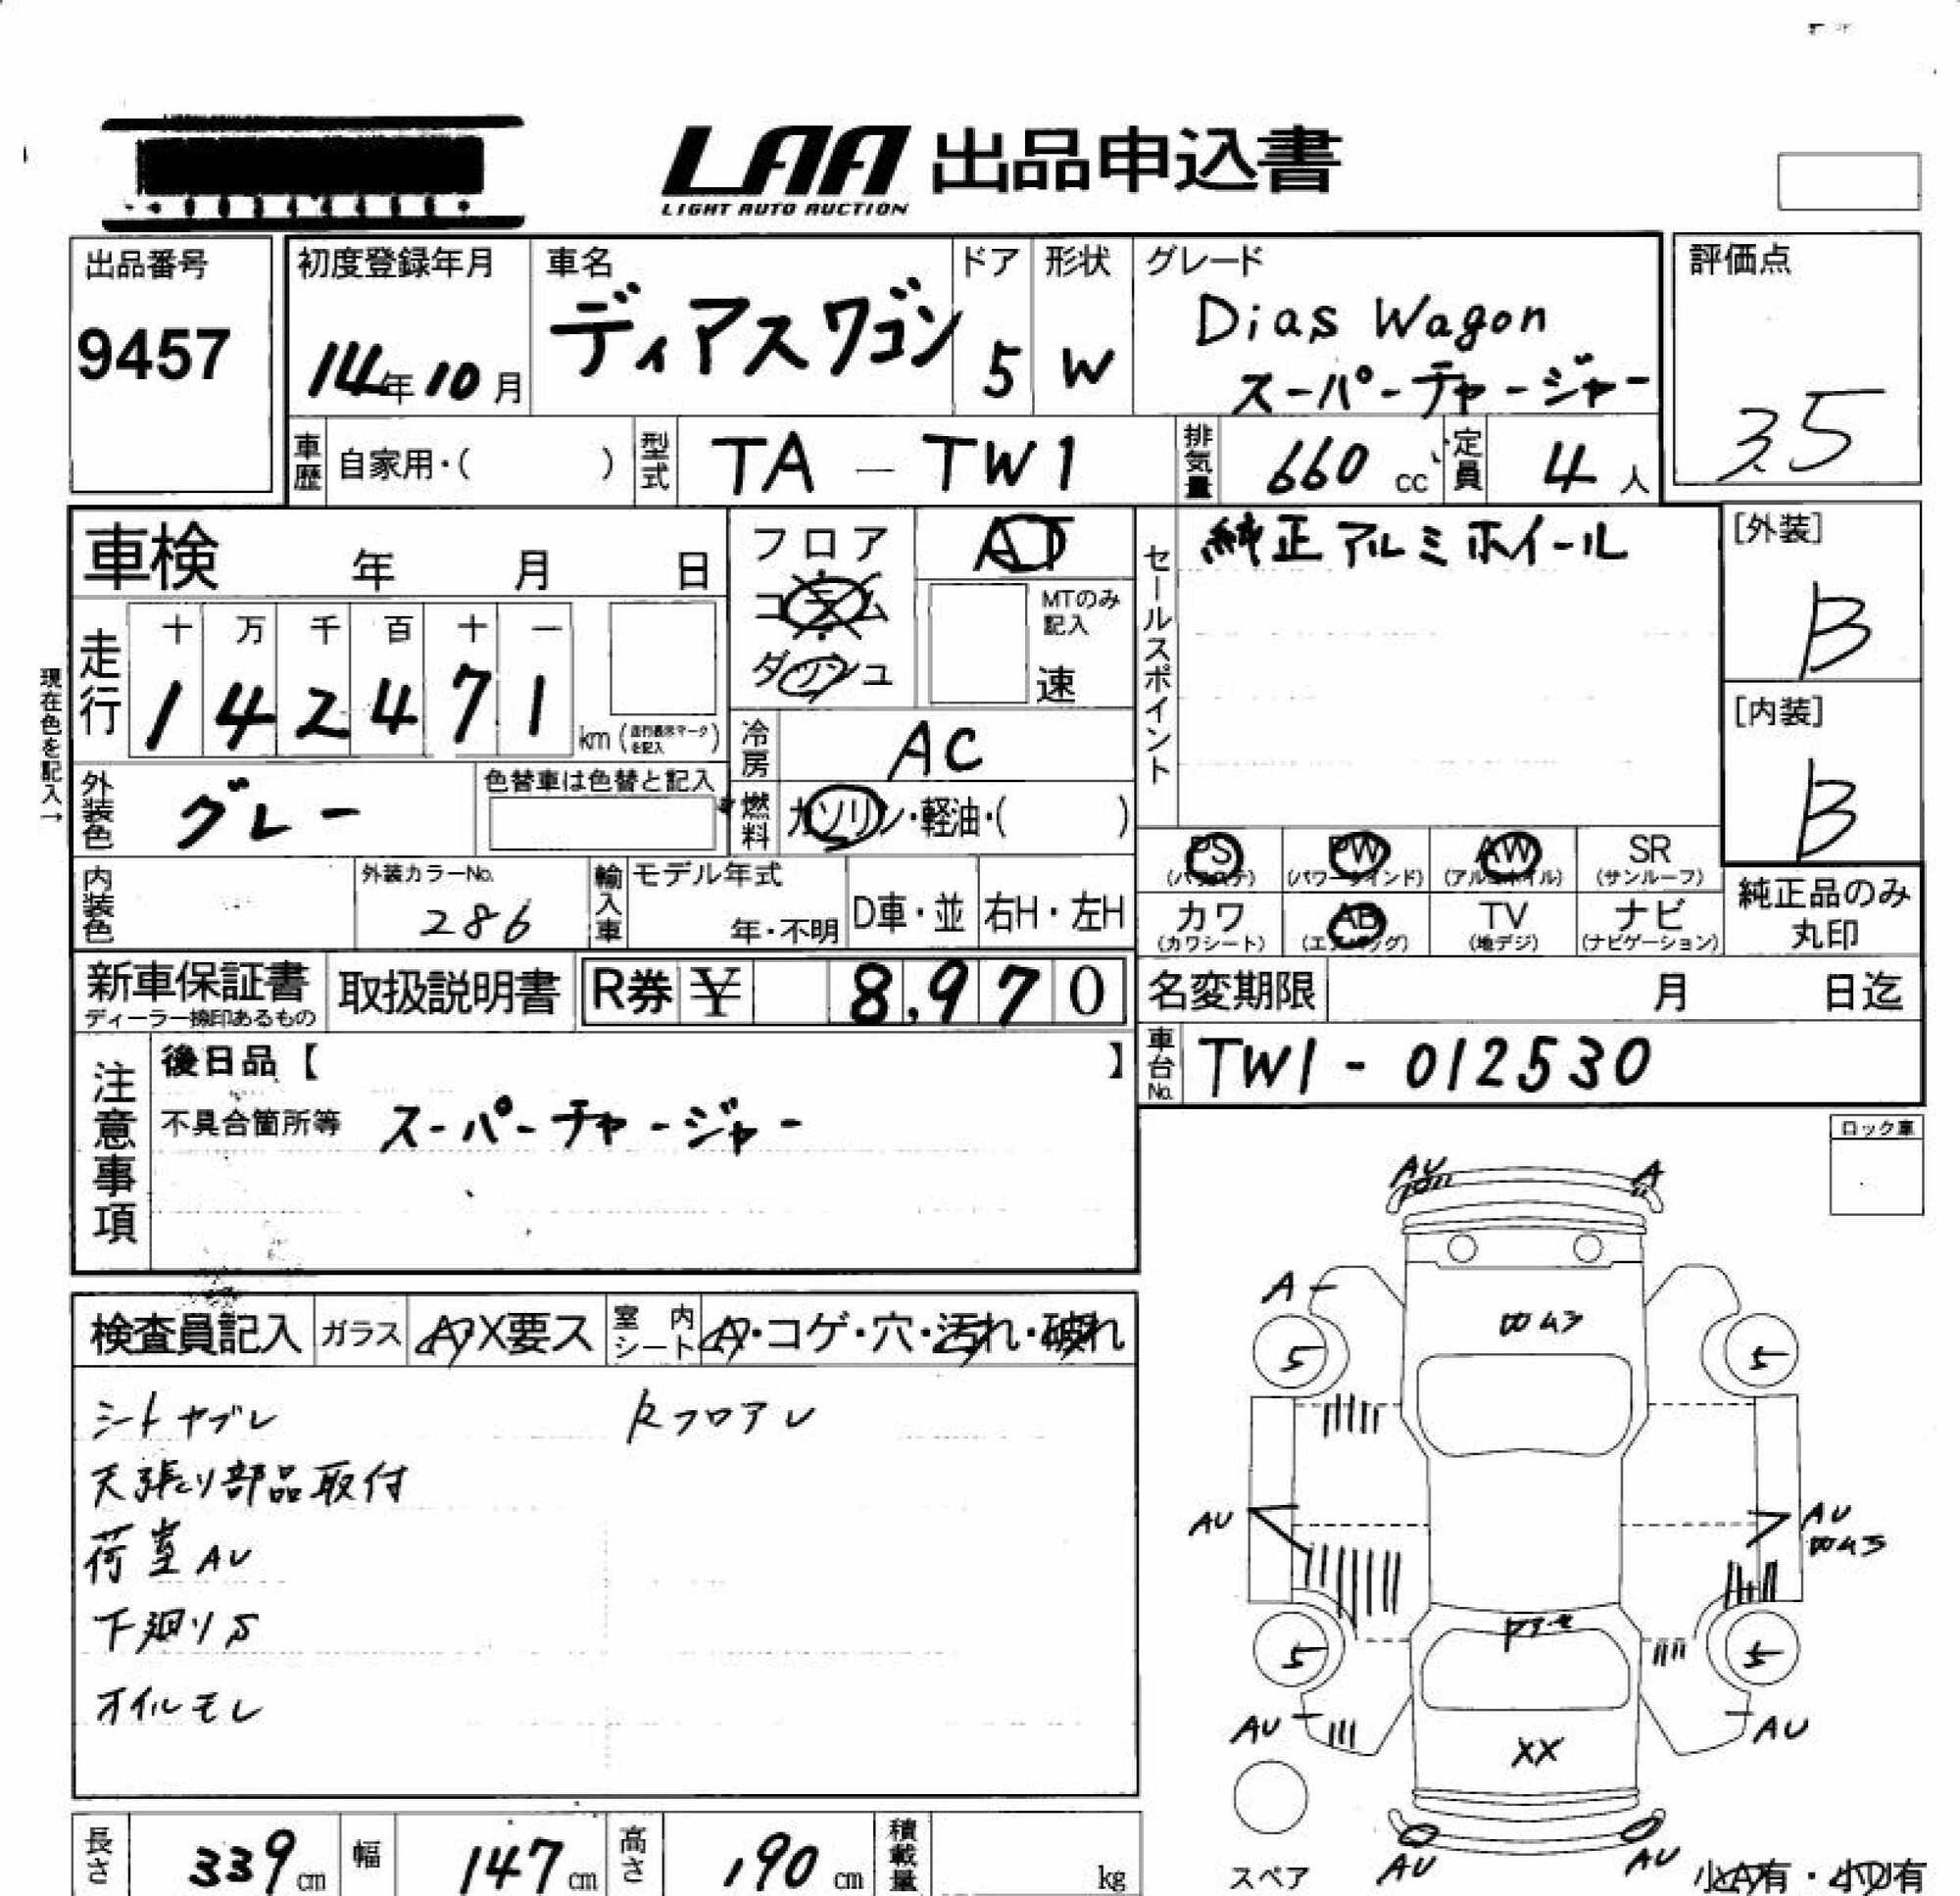 LAA 出品申込書
LIGHT AUTO AUCTION
出品番号
9457
初度登録年月
14年10月
車名
ディアスワゴン
ドア
5
形状
W
グレード
Dias Wagon
スーパーチャージャー
評価点
3.5
車歴 自家用・( )
型式 TA - TW1
排気量 660 cc
定員 4人
車検 年 月 日
走行
十 万 千 百 十 一
1 4 2 4 7 1 km (走行表示マークを記入)
現在色を記入→
外装色 グレー
色替車は色替と記入
内装色
外装カラーNo.
286
フロア
コラム
ダッシュ
AT
MTのみ記入
速
冷房 AC
燃料 ガソリン・軽油・( )
輸入車 モデル年式
年・不明
D車・並
右H・左H
セールスポイント
純正アルミホイール
[外装]
B
[内装]
B
PS (パワステ)
PW (パワーウインド)
AW (アルミホイル)
SR (サンルーフ)
カワ (カワシート)
AB (エアバッグ)
TV (地デジ)
ナビ (ナビゲーション)
純正品のみ丸印
新車保証書
ディーラー捺印あるもの
取扱説明書
R券 ¥ 8,970
名変期限 月 日迄
車台No. TW1-012530
注意事項
後日品【 】
不具合箇所等 スーパーチャージャー
ロック車
検査員記入
ガラス A・X要ス
室内シート A・コゲ・穴・汚れ・破れ
シートヤブレ
Rフロアレ
天張り部品取付
荷室AU
下廻りS
オイルモレ
AU
A
A
5
5
AU
AU
5
5
AU
XX
AU
AU
AU
スペア
小A有・小U有
長さ 339cm
幅 147cm
高さ 190cm
積載量 kg